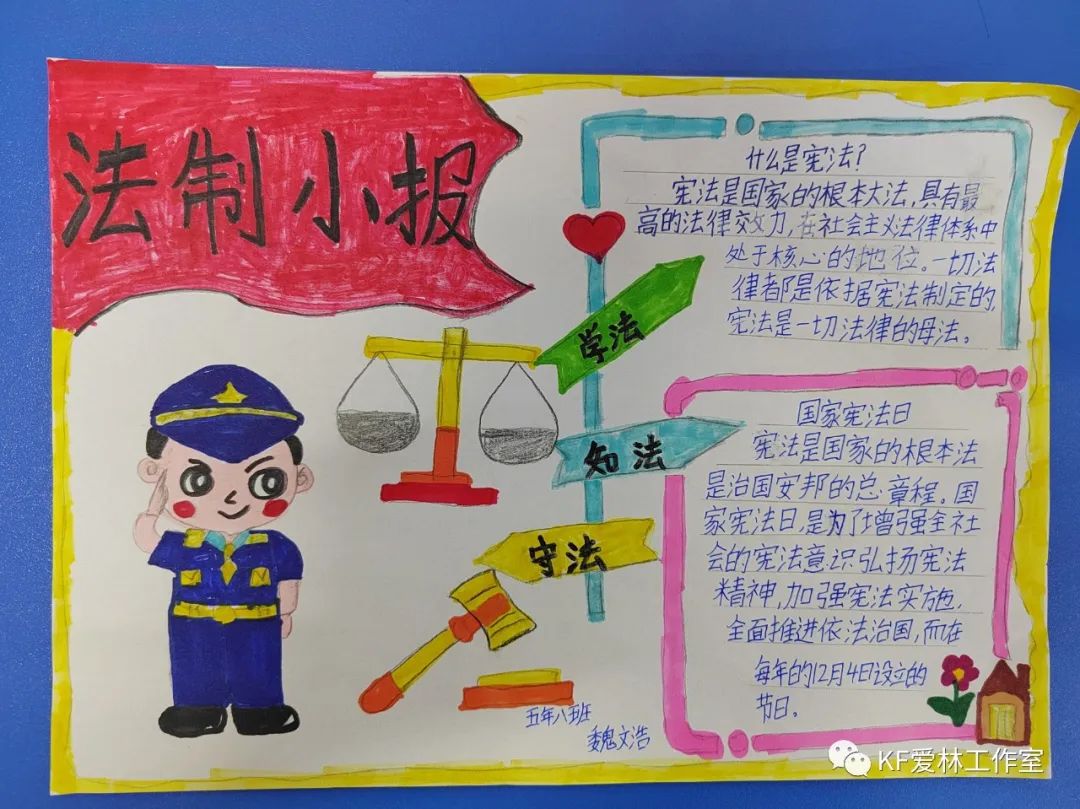 法制小报
什么是宪法?
宪法是国家的根本大法,具有最
高的法律效力,在社会主义法律体系中
处于核心的地位。一切法
律都是依据宪法制定的,
宪法是一切法律的母法。
学法
知法
守法
国家宪法日
宪法是国家的根本法
是治国安邦的总章程。国
家宪法日,是为了增强全社
会的宪法意识弘扬宪法
精神,加强宪法实施,
全面推进依法治国,而在
每年的12月4日设立的
节日。
五年八班
魏文浩
KF爱林工作室